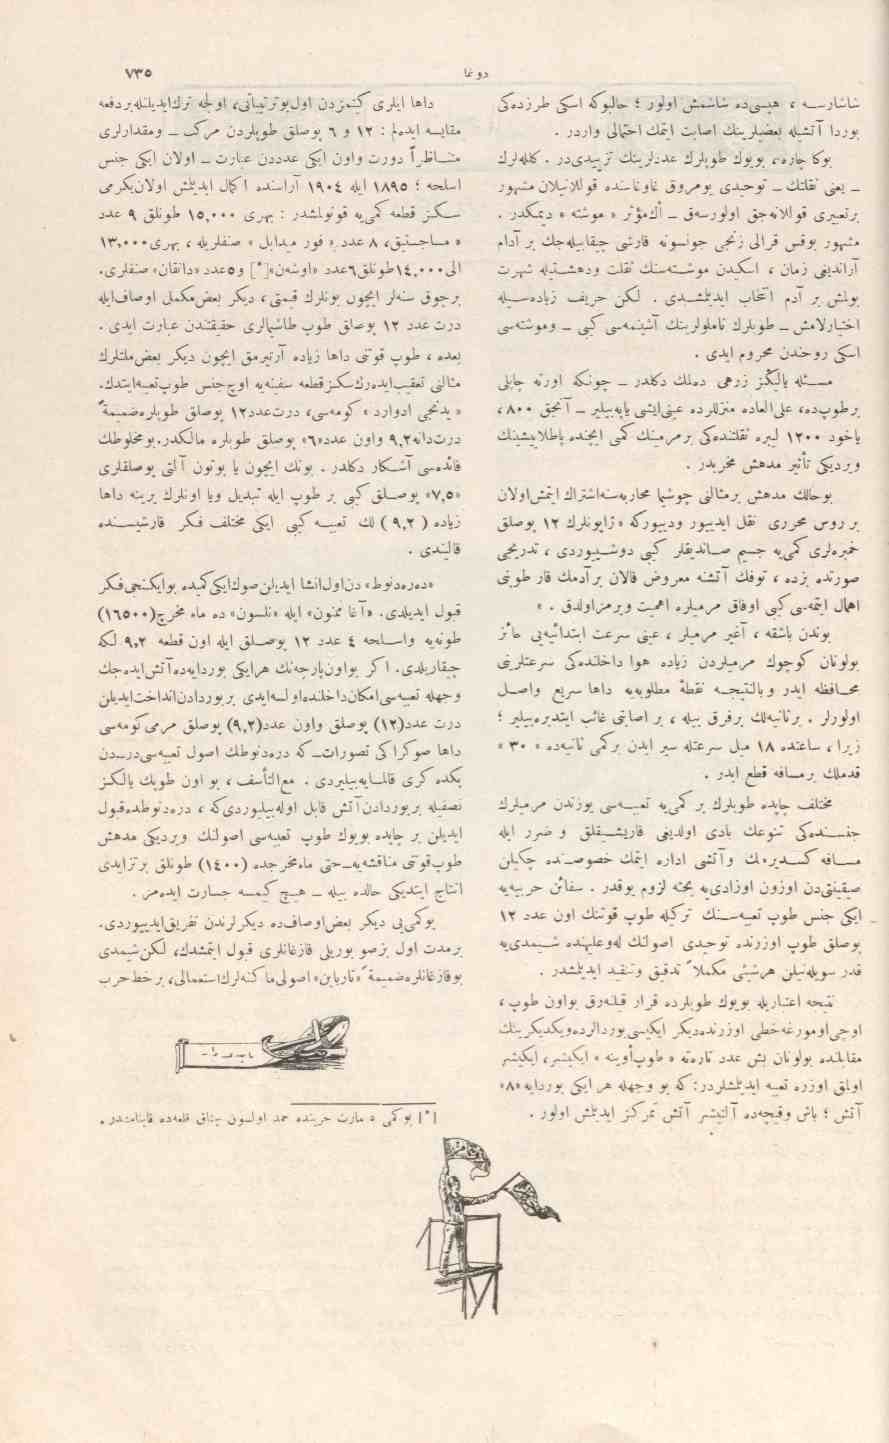 دوغا
٧٣٥
شاشارسه ، هپسی‌ده شاشمش اولور ؛ حالبوکه اسکی طرزده‌کی
بوردا آتشیله بعضیلرینك اصابت ایتمك احتمالی واردر .
بوکا چاره، بویوك طوپلرك عددلرینك تزییدی‌در . کلله‌لرك
ـ یعنی ثقلتك ـ توحیدی یومروق غاوغاسنده قوللانیلان مشهور
برتعبیری قوللانه‌جق اولورسه‌ق ـ اك مؤثر « موشته » دیمکدر .
مشهور بوقس قرالی زنجی جونسونه قارشی چیقابیله‌جك بر آدام
آراندیغی زمان ، اسکیدن موشته‌سنك ثقلت ودهشتیله شهرت
بولمش بر آدم انتخاب ایدیلمشدی . لکن حریف زیاده‌سیله
اختیارلامش ـ طوپلرك ناملولرینك آشینمه‌سی کبی ـ وموشته‌سی
اسکی روحندن محروم ایدی .
مسئله یالکز زرهی دلمك دکلدر ـ چونکه اورته چاپلی
برطوپ‌ده، علی‌العاده منزللرده عینی‌ایشی یاپه‌بیلیر ـ آنجق ٨٠٠،
یاخود ١٢٠٠ لیبره ثقلتنده‌کی برمرمینك کمی ایچنده پاطلایشینك
ویردیکی تأثیر مدهش مخربدر .
بوحالك مدهش برمثالنی چوشیما محاربه‌سنه‌اشتراك ایتمش‌اولان
بر روس محرری نقل ایدییور ودییورکه « ژاپونلرك ١٢ پوصلق
خمبره‌لری کمی‌یه جسیم صاندیقلر کبی دوشییوردی ، تدریجی
صورتده بزده ، توفك آتشنه معروض قالان برآدمك قار طوپنی
اهمال ایتمه‌سی کبی اوفاق مرمیلره اهمیت ویرمزاولدق . »
بوندن باشقه ، آغیر مرمیلر ، عینی سرعت ابتدائیه‌یی حائز
بولونان کوچوك مرمیلردن زیاده هوا داخلنده‌کی سرعتلرینی
محافظه ایدر وبالنتیجه نقطهٔ مطلوبه‌یه داها سریع واصل
اولورلر . برثانیه‌لك برفرق بیله ، بر اصابتی غائب ایتدیره‌بیلیر ؛
زیرا ، ساعتده ١٨ میل سرعتله سیر ایدن برکمی ثانیه‌ده « ٣٠ »
قدملك برمسافه قطع ایدر .
مختلف چاپده طوپلرك بر کمی‌یه تعبیه‌سی یوزندن مرمیلرك
جنسنده‌کی تنوعك بادی اولدیغی قاریشیقلق و ضرر ایله
مسافه کسدیرمك وآتشی اداره ایتمك خصوصنده چکیلن
صیقینتی‌دن اوزون اوزادی‌یه بحثه لزوم یوقدر . سفائن حربیه‌یه
ایکی جنس طوپ تعبیه‌سنك ترکیله طوپ قوتنك اون عدد ١٢
پوصلق طوپ اوزرنده توحیدی اصولنك له‌وعلیهنده شیمدی‌یه
قدر سویله‌نیلن هرشیئی مکملاً تدقیق وتنقید ایدیلمشدر .
نتیجه اعتباریله بویوك طوپلرده قرار قیلنه‌رق بواون طوپ ،
اوچی‌اومورغه‌خطی اوزرنده‌دیکر ایکیسی‌بوردالرده‌ویکدیکرینك
مقابلنده بولونان بش عدد تاره‌ته « طوپ‌اوینه » ایکیشر، ایکیشر
اولمق اوزره تعبیه ایدیلمشلردر: که بو وجهله هر ایکی بوردایه «٨»
آتش ؛ باش وقیچه‌ده آلتیشر آتش تمرکز ایدیلمش اولور .
داها ایلری کیتمزدن اول‌بوترتیباتی، اولجه ترك‌ایدیلنله‌بردفعه
مقایسه ایده‌لم : ١٢ و ٦ پوصلق طوپلردن مرکب ـ ومقدارلری
متناظراً دورت واون ایکی عدددن عبارت ـ اولان ایکی جنس
اسلحه ؛ ١٨٩٥ ایله ١٩٠٤ آراسنده اکمال ایدیلمش اولان‌یکرمی
سکز قطعه کمی‌یه قونولمشدر : بهری ١٥,٠٠٠ طونلق ٩ عدد
« ماجستیق، ٨ عدد « فور میدابل » صنفلریله ، بهری١٣,٠٠٠
الی١٤,٠٠٠طونلق٦عدد «اوشه‌ن»[*] و٥عدد «دانقان» صنفلری.
برچوق سنه‌لر ایچون بونلرك قیمتی، دیکر بعض‌مکمل اوصاف‌ایله
درت عدد ١٢ پوصلق طوپ طاشیمالری حقیقتندن عبارت ایدی .
بعده ، طوپ قوتنی داها زیاده آرتیرمق ایچون دیکر بعض‌ملتلرك
مثالنی تعقیب‌ایده‌رك‌سکزقطعه سفینه‌یه اوچ‌جنس طوپ‌تعبیه‌ایتدك.
« یدنجی ادوارد » کومه‌سی، درت‌عدد١٢ پوصلق طوپلره‌ضمیمةً
درت‌دانه٩,٢ واون عدد«٦» پوصلق طوپلره مالکدر.بومخلوطك
فائده‌سی آشکار دکلدر . بونك ایچون یا بوتون آلتی پوصلقلری
«٧,٥» پوصلق کبی بر طوپ ایله تبدیل ویا اونلرك یرینه داها
زیاده ( ٩,٢ ) لك تعبیه کبی ایکی مختلف فکر قارشیسنده
قالیندی .
«دره‌دنوط» دن‌اول‌انشا ایدیلن صوك‌ایکی‌کمیده بوایکنجی‌فکر
قبول ایدیلدی. «آغا ممنون» ایله «نلسون» ده ماء مخرج(١٦٥٠٠)
طونه‌یه واسلحه ٤ عدد ١٢ پوصلق ایله اون قطعه ٩,٢ لکه
چیقاریلدی. اکر بواون‌پارچه‌نك هرایکی بوردایه‌ده‌آتش‌ایده‌جك
وجهله تعبیه‌سی‌امکان‌داخلنده‌اولسه‌ایدی بربوردادن‌انداخت‌ایدیلن
درت عدد(١٢) پوصلق واون عدد(٩,٢) پوصلق مرمی‌کومه‌سی
داها صوکراکی تصورات‌ـ که دره‌دنوطك اصول تعبیه‌سی‌دردن
پکده کری قالمایه‌بیلیردی . مع‌التأسف ، بو اون طوپك یالکز
نصفیله بربوردادن‌آتش قابل اوله‌بیلیوردی‌که ، دره‌دنوطده‌قبول
ایدیلن بر چاپده بویوك طوپ تعبیه‌سی اصولنك ویردیکی مدهش
طوپ‌قوتنی مناقشه‌یه‌ـ‌حتی ماءمخرجده (١٤٠٠) طونلق برتزایدی
انتاج ایتدیکی حالده بیله ـ هیچ کیمسه جسارت ایده‌مز .
بوکمی‌یی دیکر بعض‌اوصاف‌ده دیکرلرندن تفریق‌ایدییوردی.
برمدت اول بزصو بوریلی قازغانلری قبول ایتمشدك، لکن‌شیمدی
بوقازغانلره‌ضمیمةً «تاربابن» اصولی‌ماکنه‌لرك‌استعمالی، برخط‌حرب
[*] بوکمی ٥ مارت حربنده حمد اولسون چناق قلعه‌ده قاینامشدر .